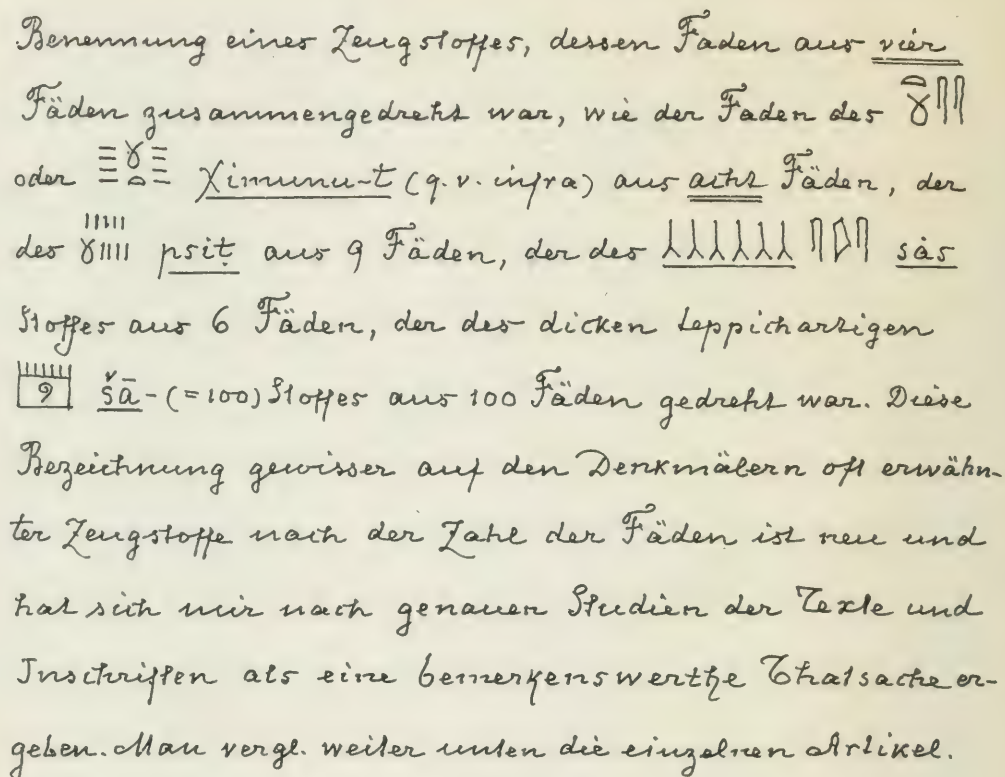 Benennung eines Zeugstoffes, dessen Faden aus vier
Fäden zusammengedreht war, wie der Faden des
oder χimunu-t (q. v. infra) aus acht Fäden, der
des psiṭ aus 9 Fäden, der des sás
Stoffes aus 6 Fäden, der des dicken teppichartigen
šā- (= 100) Stoffes aus 100 Fäden gedreht war. Diese
Bezeichnung gewisser auf den Denkmälern oft erwähn-
ter Zeugstoffe nach der Zahl der Fäden ist neu und
hat sich mir nach genauen Studien der Texte und
Inschriften als eine bemerkenswerthe Thatsache er-
geben. Man vergl. weiter unten die einzelnen Artikel.